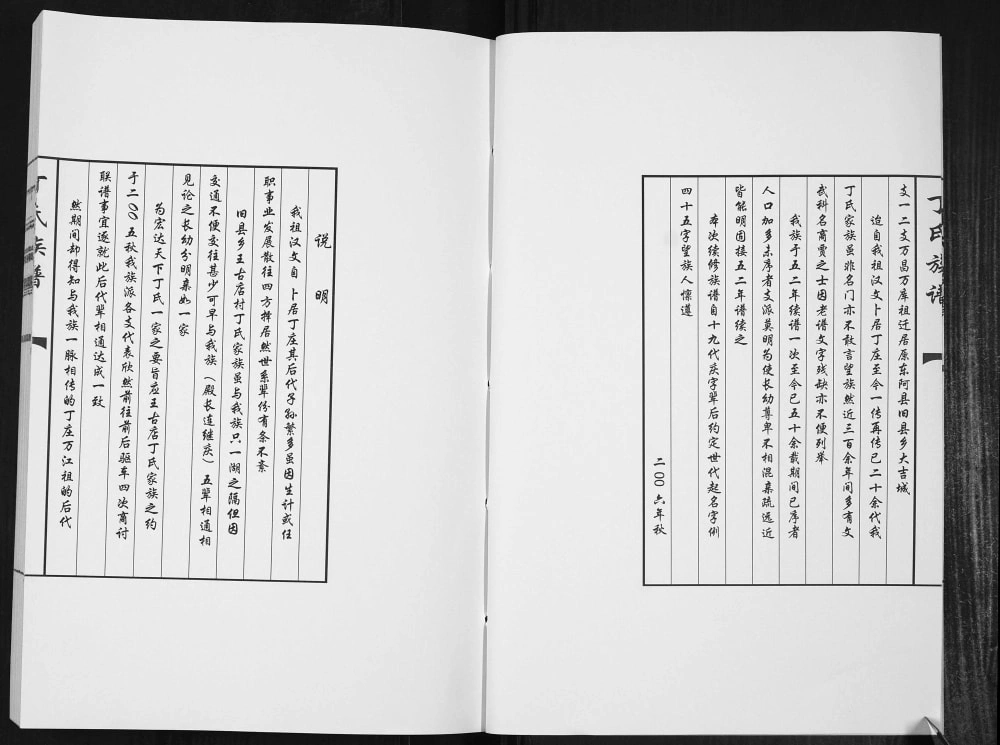 丁氏族谱
支一二支万昌万库祖迁居原东阿县旧县乡大吉城
迨自我祖汉文卜居丁庄至今一传再传已二十余代我
丁氏家族虽非名门亦不敢言望族然近三百余年间多有文
武科名商贾之士因老谱文字残缺亦不便列举
我族于五二年续谱一次至今已五十余载期间已序者
人口加多未序者支派莫明为使长幼尊卑不相混亲疏远近
皆能明固接五二年谱续之
本次续修族谱自十九代庆字辈后约定世代起名字例
四十五字望族人懔遵
二00六年秋
说明
我祖汉文自卜居丁庄其后代子孙繁多虽因生计或任
职事业发展散往四方择居然世系辈份有条不紊
旧县乡王古店村丁氏家族虽与我族只一湖之隔但因
交通不便交往甚少可早与我族（殿长连继庆）五辈相通相
见论之长幼分明亲如一家
为宏达天下丁氏一家之要旨应王古店丁氏家族之约
于二00五秋我族派各支代表欣然前往前后驱车四次商讨
联谱事宜遂就此后代辈相通达成一致
然期间却得知与我族一脉相传的丁庄万江祖的后代
丁氏族谱